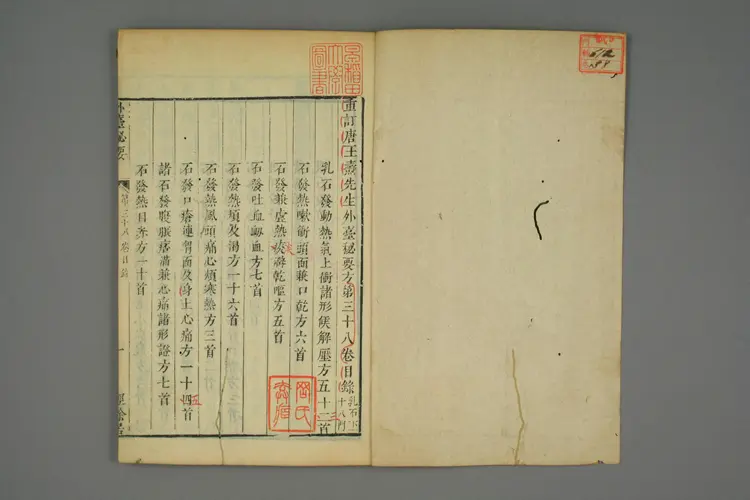 重訂唐王燾先生外臺秘要方第三十八卷目錄 乳石下 十八門
乳石發動熱氣上衝諸形候解壓方五十二首
石發熱嗽衝頭面兼口乾方六首
石發兼虛熱痰澼乾嘔方五首
石發吐血衂血方七首
石發熱煩及渴方一十六首
石發熱風頭痛心煩寒熱方三首
石發口瘡連胷面及身上心痛方一十四首
諸石發腹脹痞滿兼心痛諸形證方七首
石發熱目赤方一十首
外臺秘要
第三十八卷目錄
一
早稻田大學圖書